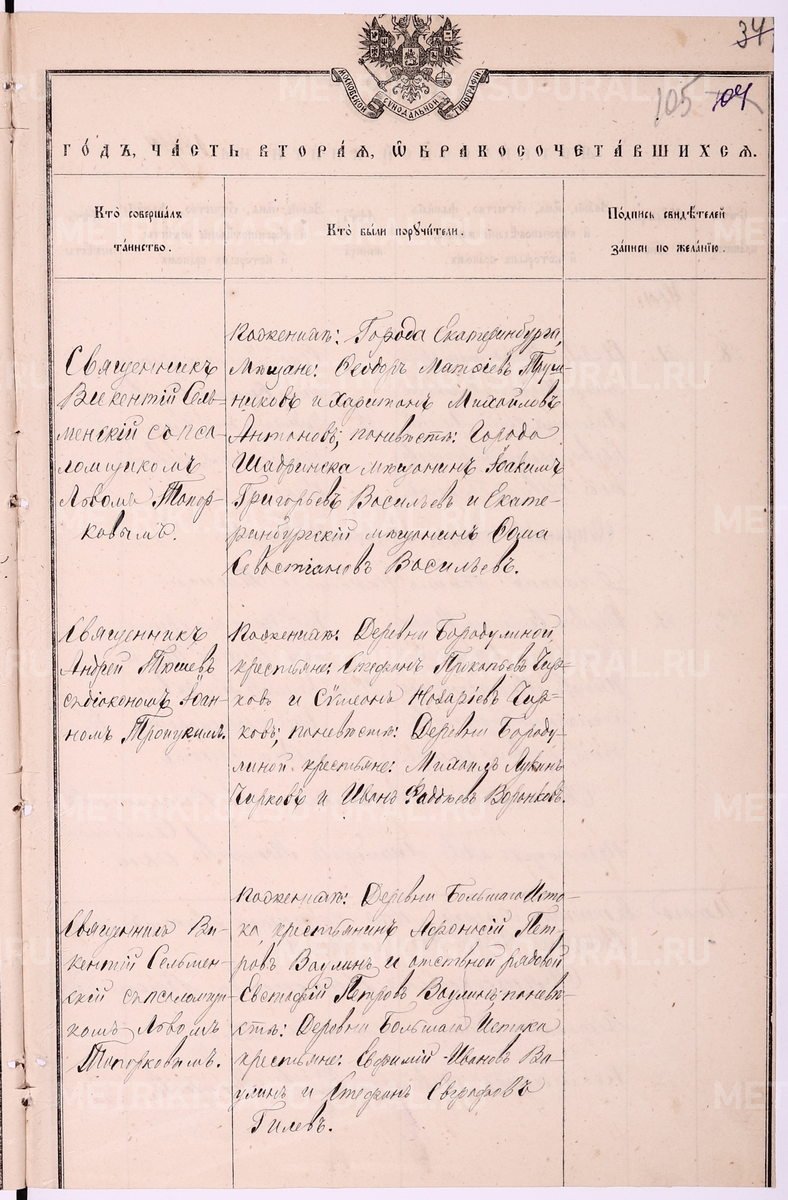 34
105 104
МОСКОВСКОЙ СѴНОДАЛЬНОЙ ТИПОГРАФІИ
ГО́ДЪ, ЧА́СТЬ ВТОРА́Я, Ѡ БРАКОСОЧЕТА́ВШИХСЯ.
Кто̀ соверша́лъ
та́инство.
Кто̀ бы́ли порꙋчи́тели.
По́дпись свидѣ́телей
за́писи по жела́нїю.
Священникъ
Викентій Сель-
менскій съ псо-
ломщикомъ
Львомъ Топор-
ковымъ.
Поженихѣ: Города Екатеринбурга,
Мѣщане: Ѳеодоръ Матѳіевъ Труш-
никовъ и Харитонъ Михайловъ
Антоновъ; поневѣстѣ: Города
Шадринска мѣщанинъ Іоакимъ
Григорьевъ Васильевъ и Екате-
ринбургскій мѣщанинъ Ѳома
Севостіановъ Васильевъ.
Священникъ
Андрей Тюшевъ
съ діокономъ Іоан-
номъ Тропукимъ.
Поженихѣ: Деревни Бородулиной,
крестьяне: Стефанъ Прокопьевъ Чир-
ковъ и Сѵмеонъ Назаріевъ Чир-
ковъ; поневѣстѣ: Деревни Бороду-
линой крестьяне: Михаилъ Лукинъ
Чирковъ и Иванъ Фаддѣевъ Воронковъ.
Священникъ Ви-
кентій Сельмен-
скій съ псаломщи-
комъ Львомъ
Топорковымъ.
Поженихѣ: Деревни Большаго Исто-
ка, крестьянинъ Аѳонасій Пет-
ровъ Ваулинъ и отставной рядовой
Евстафій Петровъ Ваулинъ; поневѣ-
стѣ: Деревни Большаго Истока
крестьяне: Евфимій Ивановъ Ва-
улинъ и Стефанъ Евграфовъ
Гилевъ.